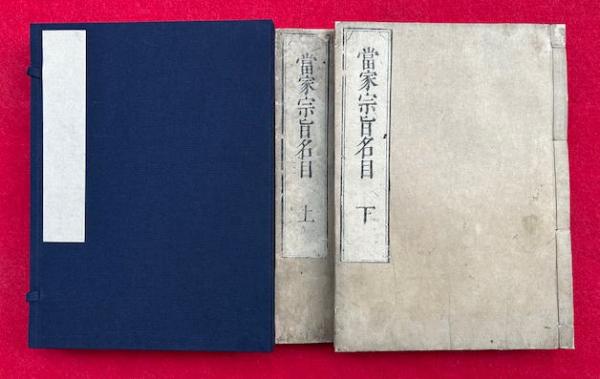 當家宗旨名目 上
當家宗旨名目 下